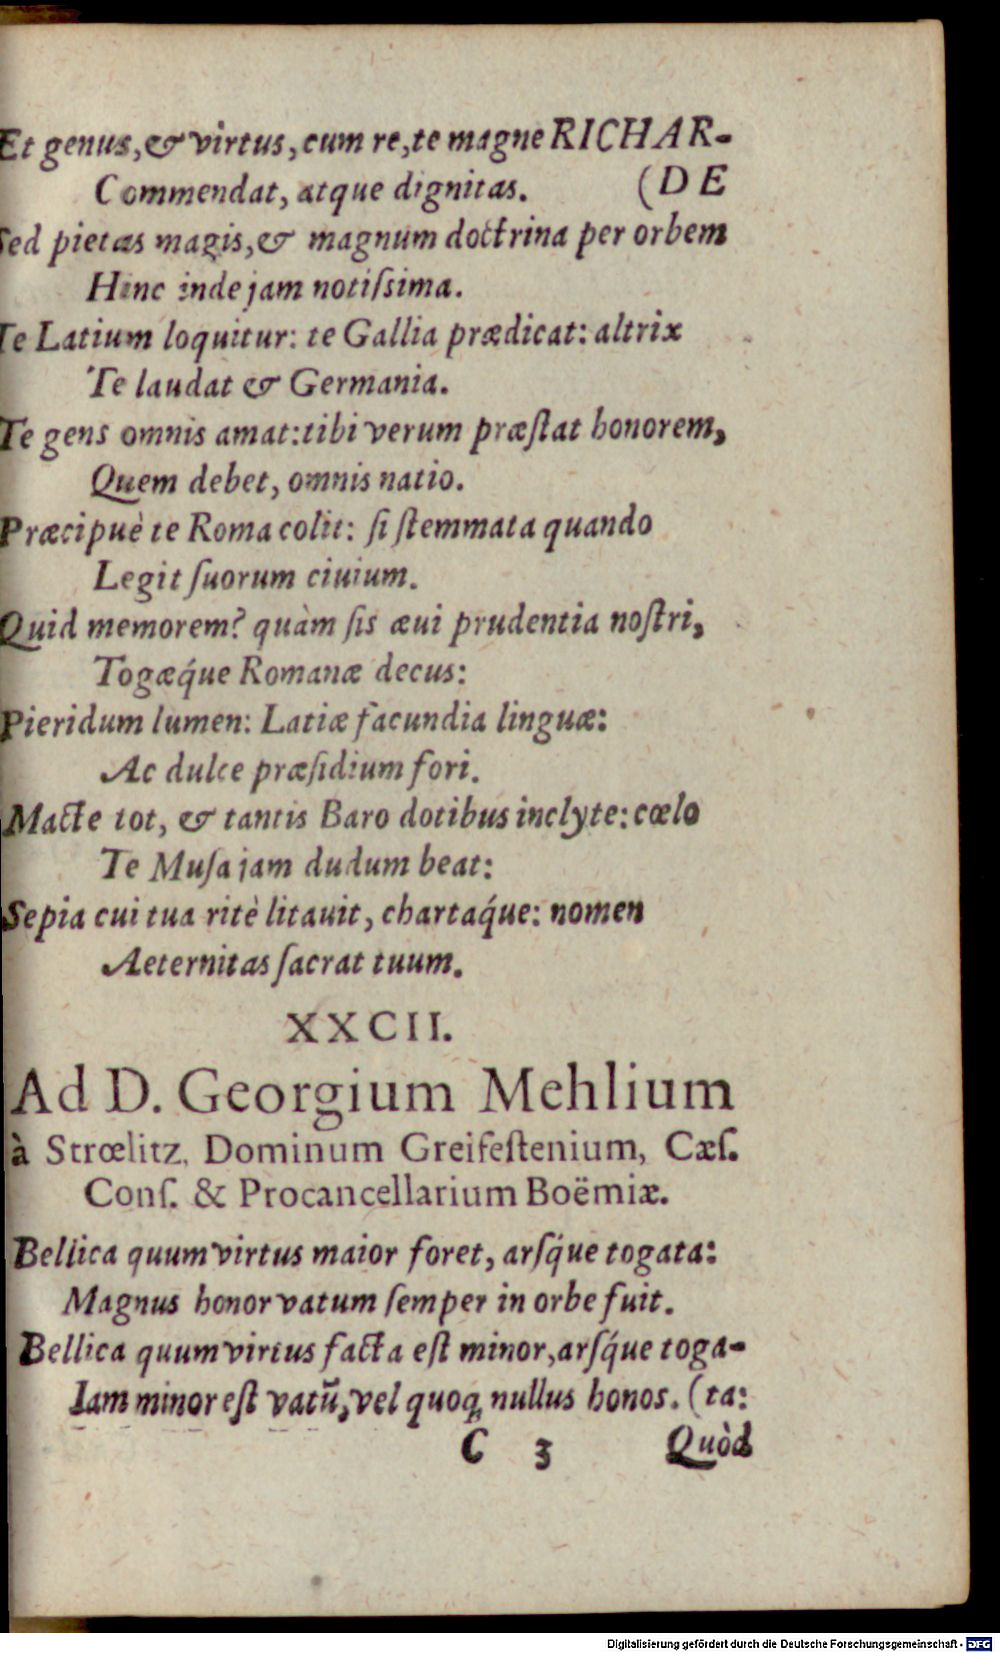 Et genus, & virtus, cum re, te magne RICHAR-
Commendat, atque dignitas. (DE
Sed pietas magis, & magnum doctrina per orbem
Hinc inde jam notiſsima.
Te Latium loquitur: te Gallia prædicat: altrix
Te laudat & Germania.
Te gens omnis amat: tibi verum præſtat honorem,
Quem debet, omnis natio.
Præcipuè te Roma colit: ſi ſtemmata quando
Legit ſuorum ciuium.
Quid memorem? quàm ſis æui prudentia noſtri,
Togæq́ue Romanæ decus:
Pieridum lumen: Latiæ facundia linguæ:
Ac dulce præſidium fori.
Macte tot, & tantis Baro dotibus inclyte: cœlo
Te Muſa jam dudum beat:
Sepia cui tua ritè litauit, chartaq́ue: nomen
Aeternitas ſacrat tuum.
XXCII.
Ad D. Georgium Mehlium
à Strœlitz, Dominum Greifeſtenium, Cæſ.
Conſ. & Procancellarium Boëmiæ.
Bellica quum virtus maior foret, arſq́ue togata:
Magnus honor vatum ſemper in orbe fuit.
Bellica quum virtus facta eſt minor, arſq́ue toga-
Iam minor eſt vatũ, vel quoq; nullus honos. (ta:
C 3 Quòd
Digitalisierung gefördert durch die Deutsche Forschungsgemeinschaft - DFG